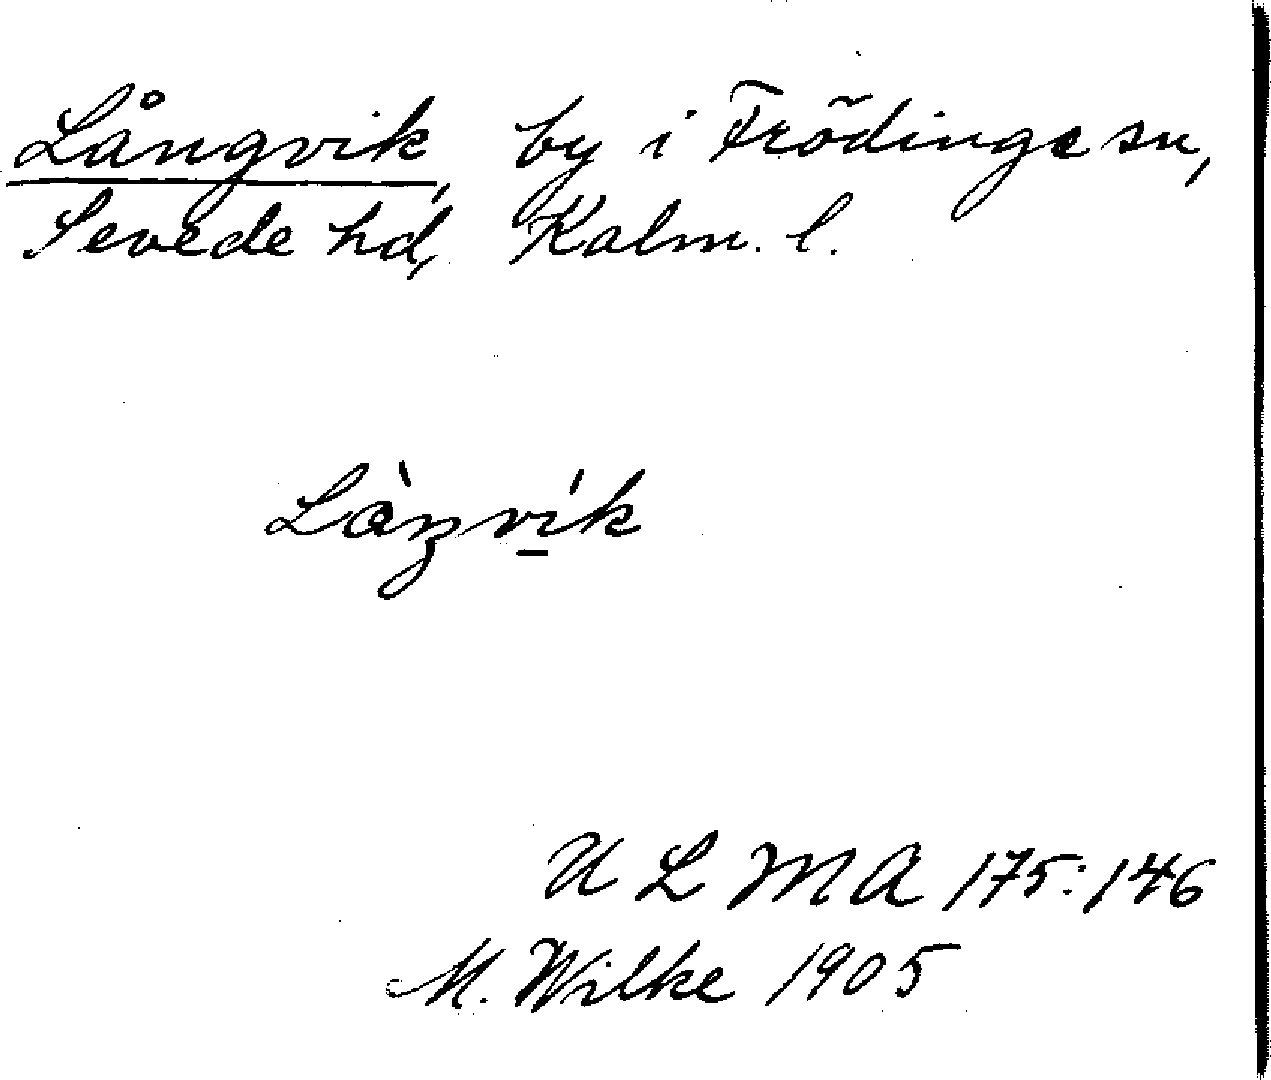 Långvik, by i Frödinge sn,
Sevede hd, Kalm. l.
Làŋvík
ULMA 175:146
M. Wilke 1905